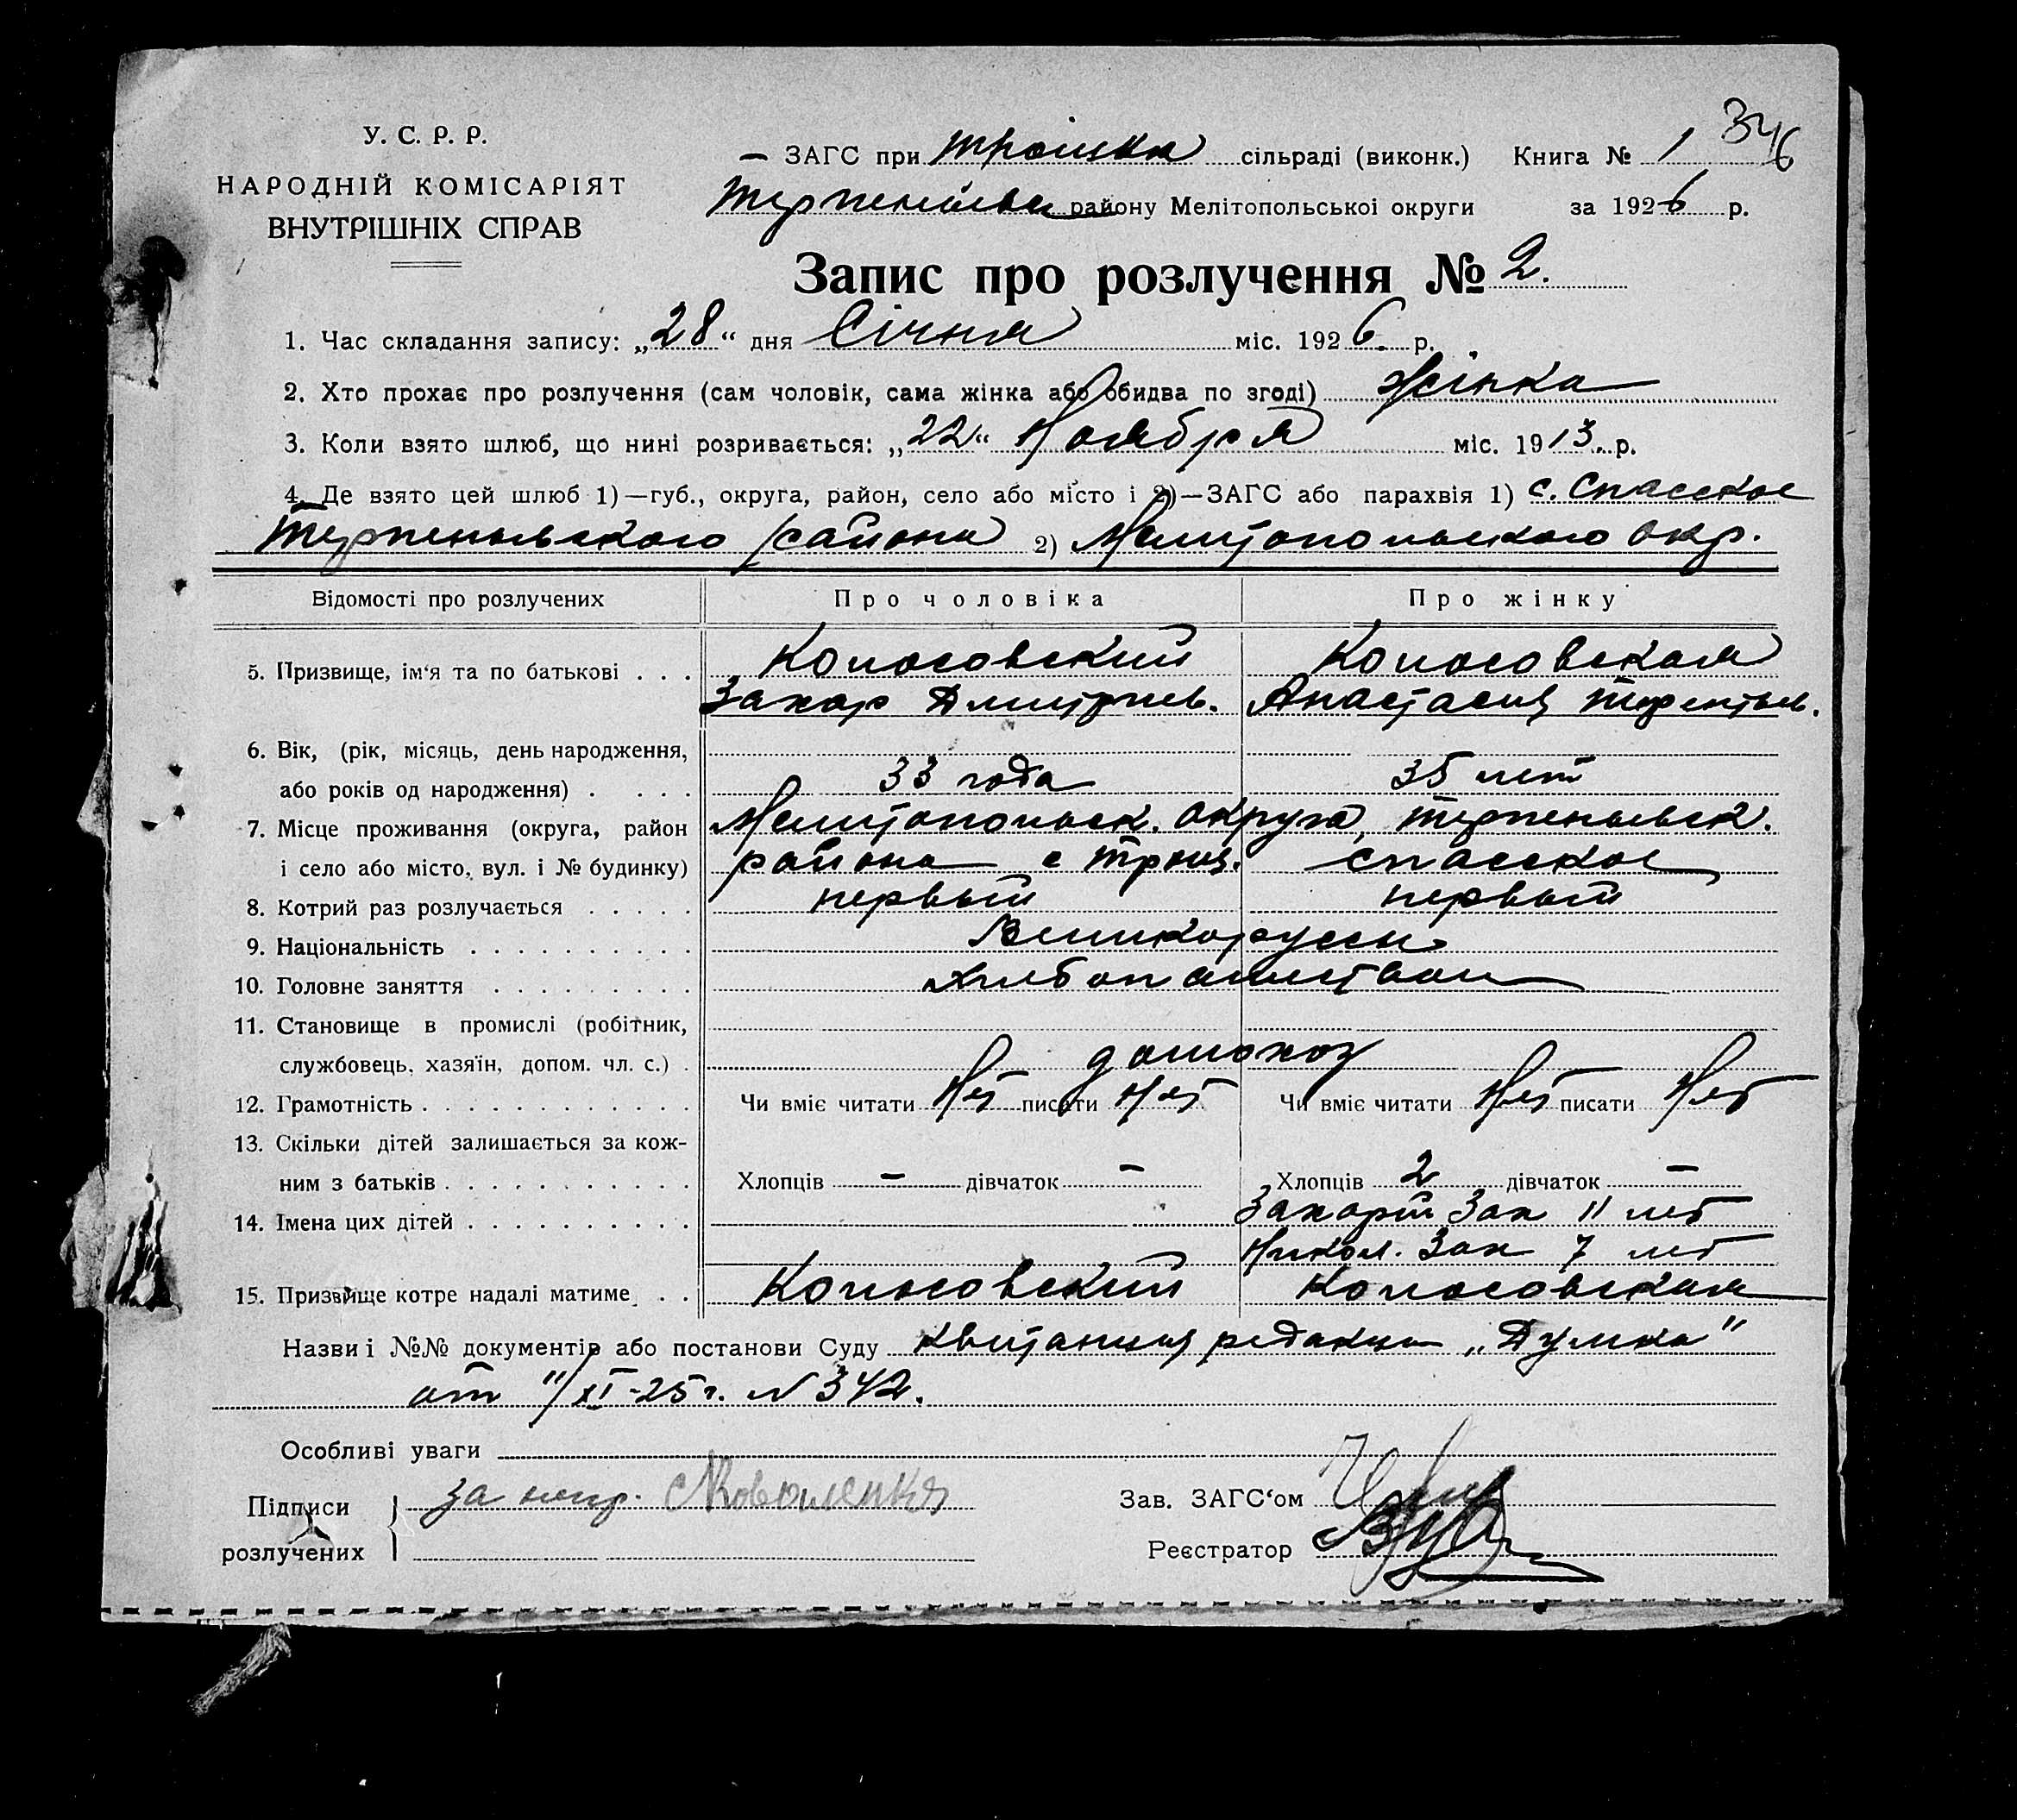 346
У. С. Р. Р.
НАРОДНІЙ КОМІСАРІЯТ
ВНУТРІШНІХ СПРАВ
ЗАГС при сільраді (виконк.) Книга № 1
району Мелітопольської округи за 1926 р.
Запис про розлучення № 2.
1. Час складання запису: „28“ дня Січня міс. 1926. р.
2. Хто прохає про розлучення (сам чоловік, сама жінка або обидва по згоді) Жінка
3. Коли взято шлюб, що нині розривається: „22“ Ноября міс. 1913. р.
4. Де взято цей шлюб 1)—губ., округа, район, село або місто і 2)—ЗАГС або парахвія 1) с. Спасское
Терпеньевского района 2) Мелитопольского окр.
Відомості про розлучених Про чоловіка Про жінку
5. Призвище, ім‘я та по батькові . . . Колосовский Колосовская
Захар Дмитриев. Анастасия Терентьев.
6. Вік, (рік, місяць, день народження,
або років од народження) . . . . 33 года 35 лет
7. Місце проживання (округа, район Мелитопольск. округа, Терпеньевск.
і село або місто, вул. і № будинку) района с Троиц. Спасское
8. Котрий раз розлучається . . . . . первый первый
9. Національність . . . . . . . . . . Великоруссы
10. Головне заняття . . . . . . . . . Хлебопашество
11. Становище в промислі (робітник,
службовець, хазяїн, допом. чл. с.) . домохоз
12. Грамотність . . . . . . . . . . . . Чи вміє читати Нет писати Нет Чи вміє читати Нет писати Нет
13. Скільки дітей залишається за кож-
ним з батьків . . . . . . . . . . . Хлопців — дівчаток — Хлопців 2 дівчаток —
14. Імена цих дітей . . . . . . . . . . Захарий Зах 11 лет
Никол. Зах 7 лет
15. Призвище котре надалі матиме . . Колосовский Колосовская
Назви і №№ документів або постанови Суду Квитанция редакции „Думка"
от 11/XI-25 г. N 342.
Особливі уваги
Підписи за негр. Коваленко
розлучених
Зав. ЗАГС‘ом
Реєстратор